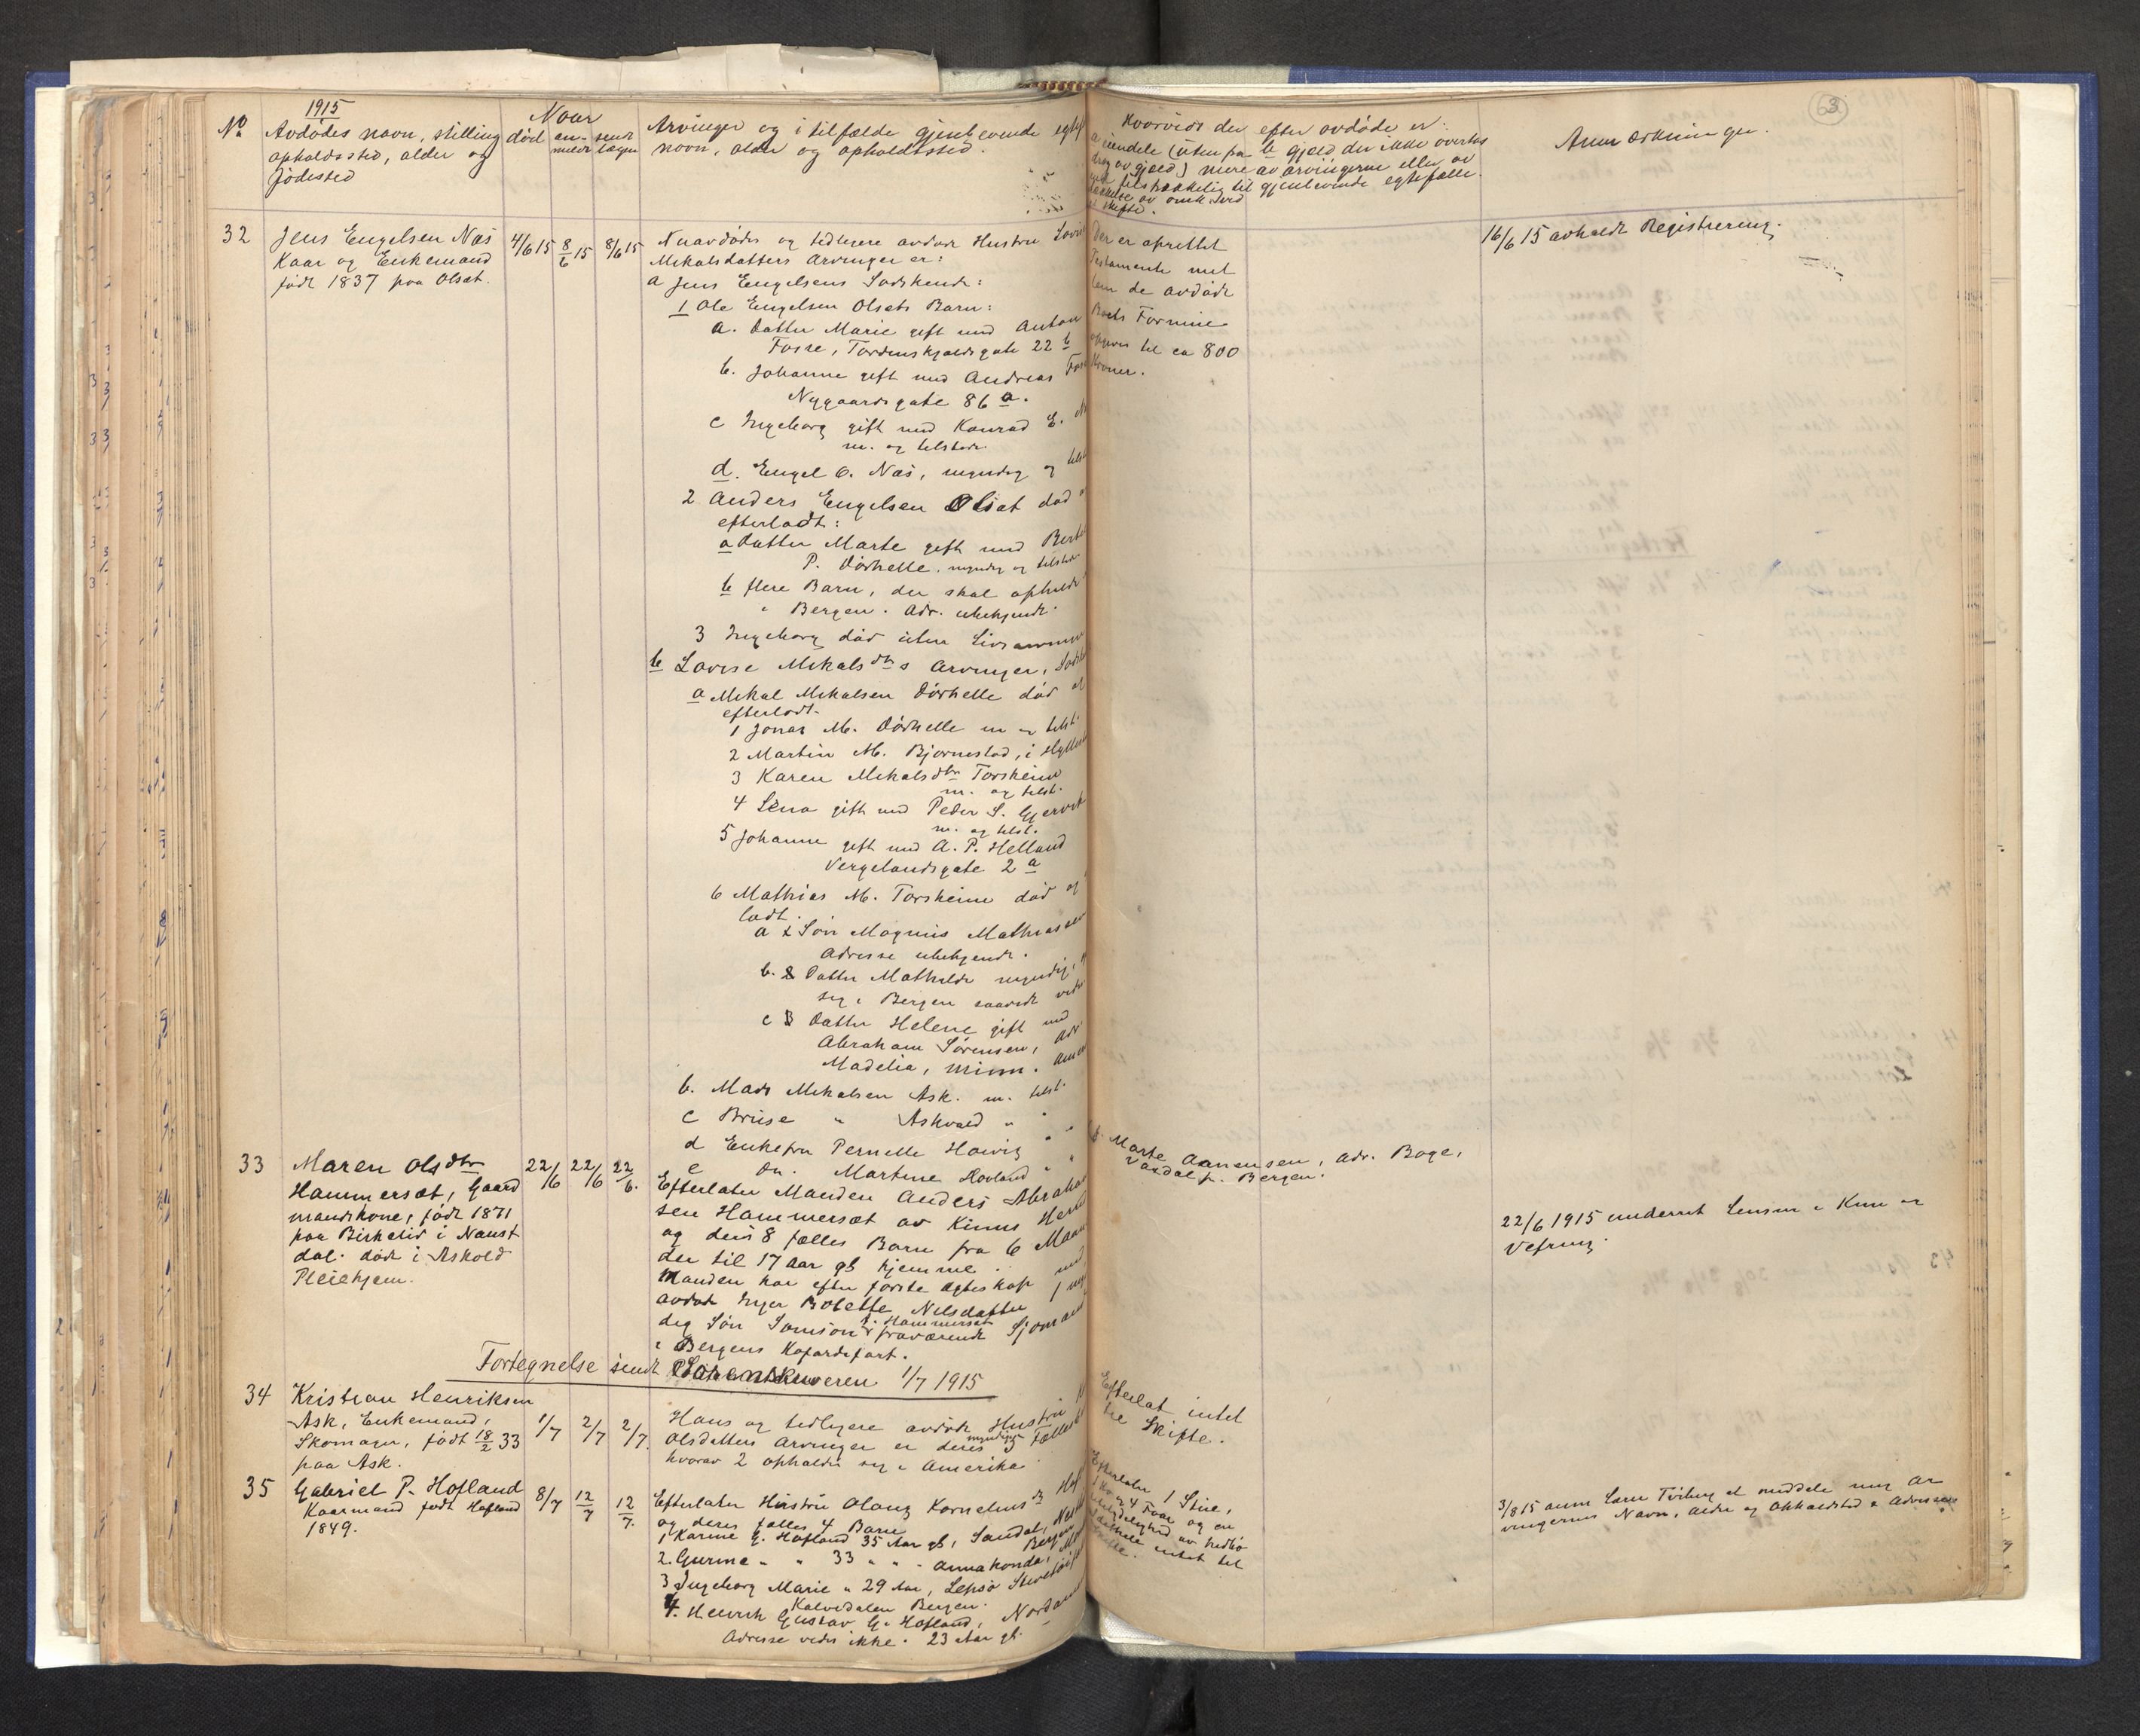 1915
No
Avdødes navn, stilling
opholdssted, alder og
fødested
Naar
død an- sendt
meldt
Arvinger og i tilfælde gjenlevende
navn, alder og opholdssted.
Hvorvidt der efter avdøde er:
a eiendele (uten fra b gjæld der ikke overtas
drag av gjæld) mere av arvingerne eller av
tilstrækkelig til gjenlevende egtefælle.
av omk. ved
skifte.
Anmerkninger.
3
32
Jens Engelsen Næs
Kaar og Enkemand
født 1837 paa Olset.
4/6 15 8/6 15 8/6 15
Nuavdødes og tidligere avdøde Hustru
Mikalsdatters Arvinger er:
a Jens Engelsens Sødskende:
1 Ole Engelsen Olsets Barn:
a. Datter Marie gift med Anton
Fosse, Tordenskjoldsgate 22 b
b. Johanne gift med Andreas
Nygaardsgate 86 a.
c Ingeborg gift med Konrad E.
m. og tilstede.
d. Engel O. Næs, myndig og
2 Anders Engelsen Olset død
efterladt:
a Datter Marte gift med
P. Dörhelle. myndig og tilstede
b flere Barn, der skal opholde
i Bergen. Adr. ubekjendt.
3 Ingeborg død uten Livsarvinger
b Lovise Mikalsdtrs Arvinger,
a Mikal Mikalsen Dörhelle død og
efterladt.
1 Jonas M. Dörhelle m og tilst.
2 Martin M. Bjørnestad, i
3 Karen Mikalsdtr Torsheim
m. og tilst.
4 Lena gift med Peder S. Gjervik
m. og tilst.
5 Johanne gift med A. P. Helland
Vergelandsgate 2 a
6 Mathias M. Torsheim død og
ladt.
a Søn Magnus Mathiassen
Adresse ubekjendt.
b. Datter Mathilde myndig,
sig i Bergen
c Datter Helene gift med
Abraham Sørensen, Adr
Madelia, Minn.
b. Mads Mikalsen Ask. m. tilst.
c Brise " Askvold " "
d Enkefru Pernelle " "
e Do. Martine Hovland " "
Der er oprettet
Testamente mel
lem de avdøde
Boets Formue
opgives til ca 800
Kroner.
16/6 15 avholdt Registrering.
f. Marte Aanensen, Adr. Boge,
Vaxdal p. Bergen.
33
Maren Olsdtr
Hammersæt, Gaard
mandskone, født 1871
paa Birkelid i Naust
dal. død i Askvold
Pleiehjem.
22/6 22/6 22/6.
Efterlater Manden Anders Abraham
sen Hammersæt av Kinns Herred
og deres 8 fælles Barn fra 6
der til 17 Aar gl hjemme.
Manden har efter første Ægteskap med
avdøde Inger Bolette Nilsdatter 1
dig Søn Samson A. Hammersæt fraværende Sjømand
i Bergens Kofardifart.
22/6 1915 underret Lensm i Kinn og
Vefring.
Fortegnelse sendt Sorenskriveren 1/7 1915
34
Kristian Henriksen
Ask, Enkemand,
Skomager, født 18/2 33
paa Ask.
1/7 2/7 2/7.
Hans og tidligere avdøde Hustru
Olsdatters Arvinger er deres myndige
hvorav 2 opholder sig i Amerika
Efterlot intet
til Skifte.
35
Gabriel P. Hofland
Kaarmand født Hofland
1849.
8/7 12/7 12/7.
Efterlater Hustru Olava Kornelius
og deres fælles 4 Barn
1 Karine G. Hofland 35 Aar gl,
2. Gurine " " 33 " " Annakonda,
3 Ingeborg Marie " 29 Aar,
Kalvedalen Bergen.
4. Henrik Gustav G. Hofland,
Adresse vides ikke. 23 Aar gl.
Efterlater 1 Stue,
1 Ko og 4 Faar og en
ubetydelighed av
intet til
Skifte.
3/8 15 anm at meddele mig Ar
vingernes Navn, Alder og Opholdsted & Adresse